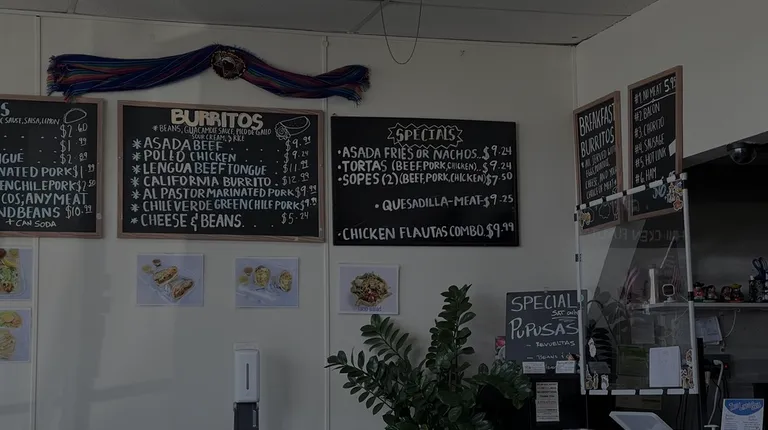 S
SAUCE, SALSA, LEMON
$2.60
$1
$2
GUE
NATED PORK $1
ENCHILE PORK $2.50
COS, ANY MEAT
AND BEANS $10
+ CAN SODA
BURRITOS
*BEANS, GUACAMOLE SAUCE, PICO DE GALLO
SOUR CREAM, & RICE
*ASADA BEEF $9.99
*POLLO CHICKEN $9.24
*LENGUA BEEF TONGUE $11.99
*CALIFORNIA BURRITO $12.99
*AL PASTOR MARINATED PORK $9.99
*CHILE VERDE GREEN CHILE PORK $9.99
*CHEESE & BEANS $5.24
SPECIALS
•ASADA FRIES OR NACHOS $9.24
•TORTAS (BEEF, PORK, CHICKEN) $9.24
•SOPES (2) (BEEF, PORK, CHICKEN) $7.50
•QUESADILLA-MEAT $9.25
•CHICKEN FLAUTAS COMBO $9.99
BREAKFAST
BURRITOS
#1 NO MEAT 5.95
#2 BACON
#3 CHORIZO
#4 SAUSAGE
#5 HOT LINK
#6 HAM
SPECIAL
SAT
PUPUSAS
- REVUELTAS